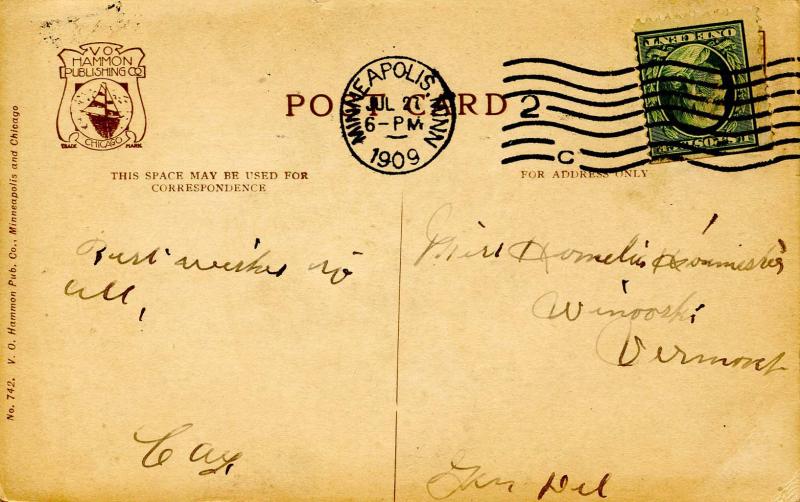 V O
HAMMON
PUBLISHING CO
CHICAGO
TRADE MARK
POST CARD
MINNEAPOLIS, MINN.
JUL 21
6-PM
1909
2
C
ONE CENT
THIS SPACE MAY BE USED FOR
CORRESPONDENCE
FOR ADDRESS ONLY
Best wishes to
all,
Miss
Winooski
Vermont
Gen Del
No. 742. V. O. Hammon Pub. Co., Minneapolis and Chicago